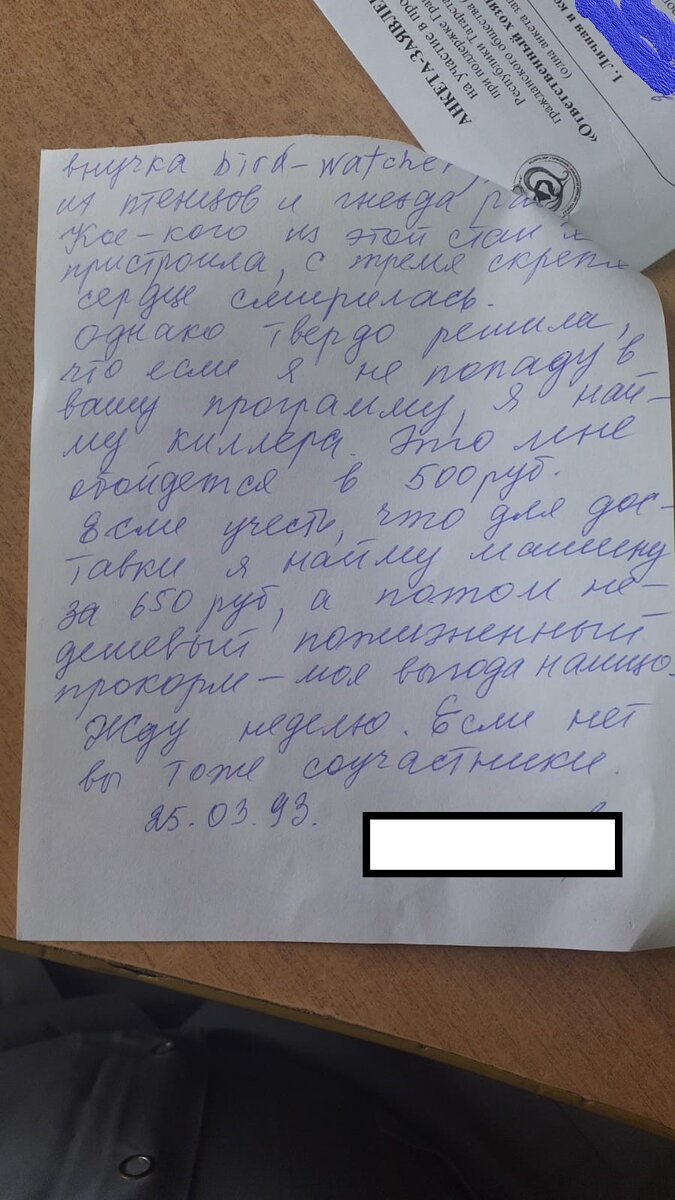 АНКЕТА ЗАЯВЛЕ
на участие в про
при поддержке Гра
Республики Татарста
гражданского общества (
«Ответственный хозя
(одна анкета за
1. Личная и к
внучка bird-watcher,
их птенцов и гнезда
Кое-кого из этой стаи я
пристроила, с тремя скрепя
сердце смирилась.
Однако твердо решила,
что если я не попаду в
вашу программу, я най-
му киллера. Это мне
обойдется в 500 руб.
Если учесть, что для дос-
тавки я найму машину
за 650 руб, а потом не-
дешевый пожизненный
прокорм – моя выгода налицо.
Жду неделю. Если нет
вы тоже соучастники.
25.03.93.